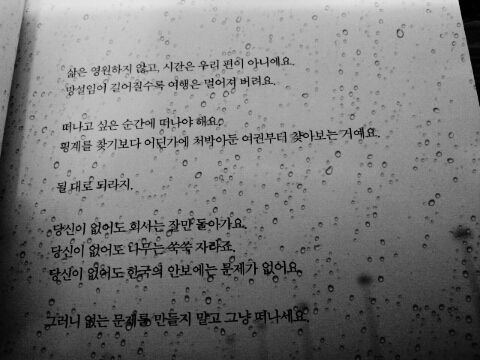 삶은 영원하지 않고, 시간은 우리 편이 아니에요.
망설임이 길어질수록 여행은 멀어져 버려요.
떠나고 싶은 순간에 떠나야 해요.
핑계를 찾기보다 어딘가에 처박아둔 여권부터 찾아보는 거예요.
될 대로 되라지.
당신이 없어도 회사는 잘만 돌아가요.
당신이 없어도 나무는 쑥쑥 자라죠.
당신이 없어도 한국의 안보에는 문제가 없어요.
그러니 없는 문제를 만들지 말고 그냥 떠나세요.